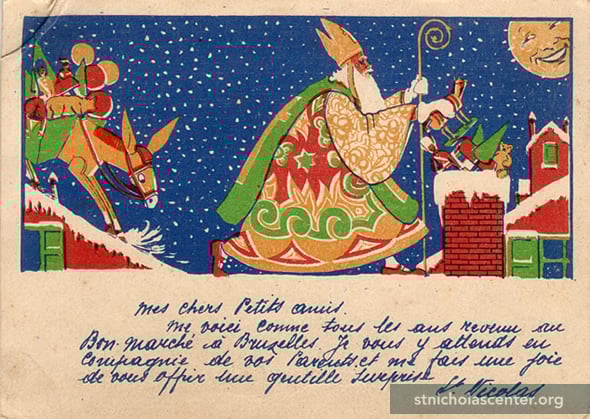 Mes chers Petits amis.
Me voici comme tous les ans revenu au
Bon-marché à Bruxelles. Je vous y attends en
compagnie de vos Parents, et me fais une joie
de vous offrir une gentille surprise
St Nicolas
stnicholascenter.org